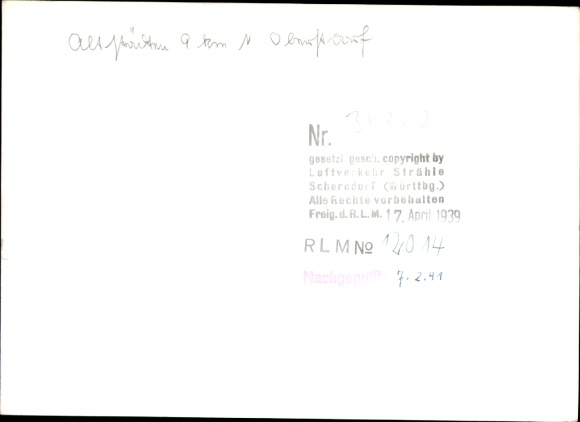 Altstädten 9 km N Oberstdorf
Nr.
gesetzl. gesch. copyright by
Luftverkehr Strähle
Schorndorf (Württbg.)
Alle Rechte vorbehalten
Freig. d. R. L. M. 17. April 1939
R L M No 12014
Nachgeprüft: 7.2.41